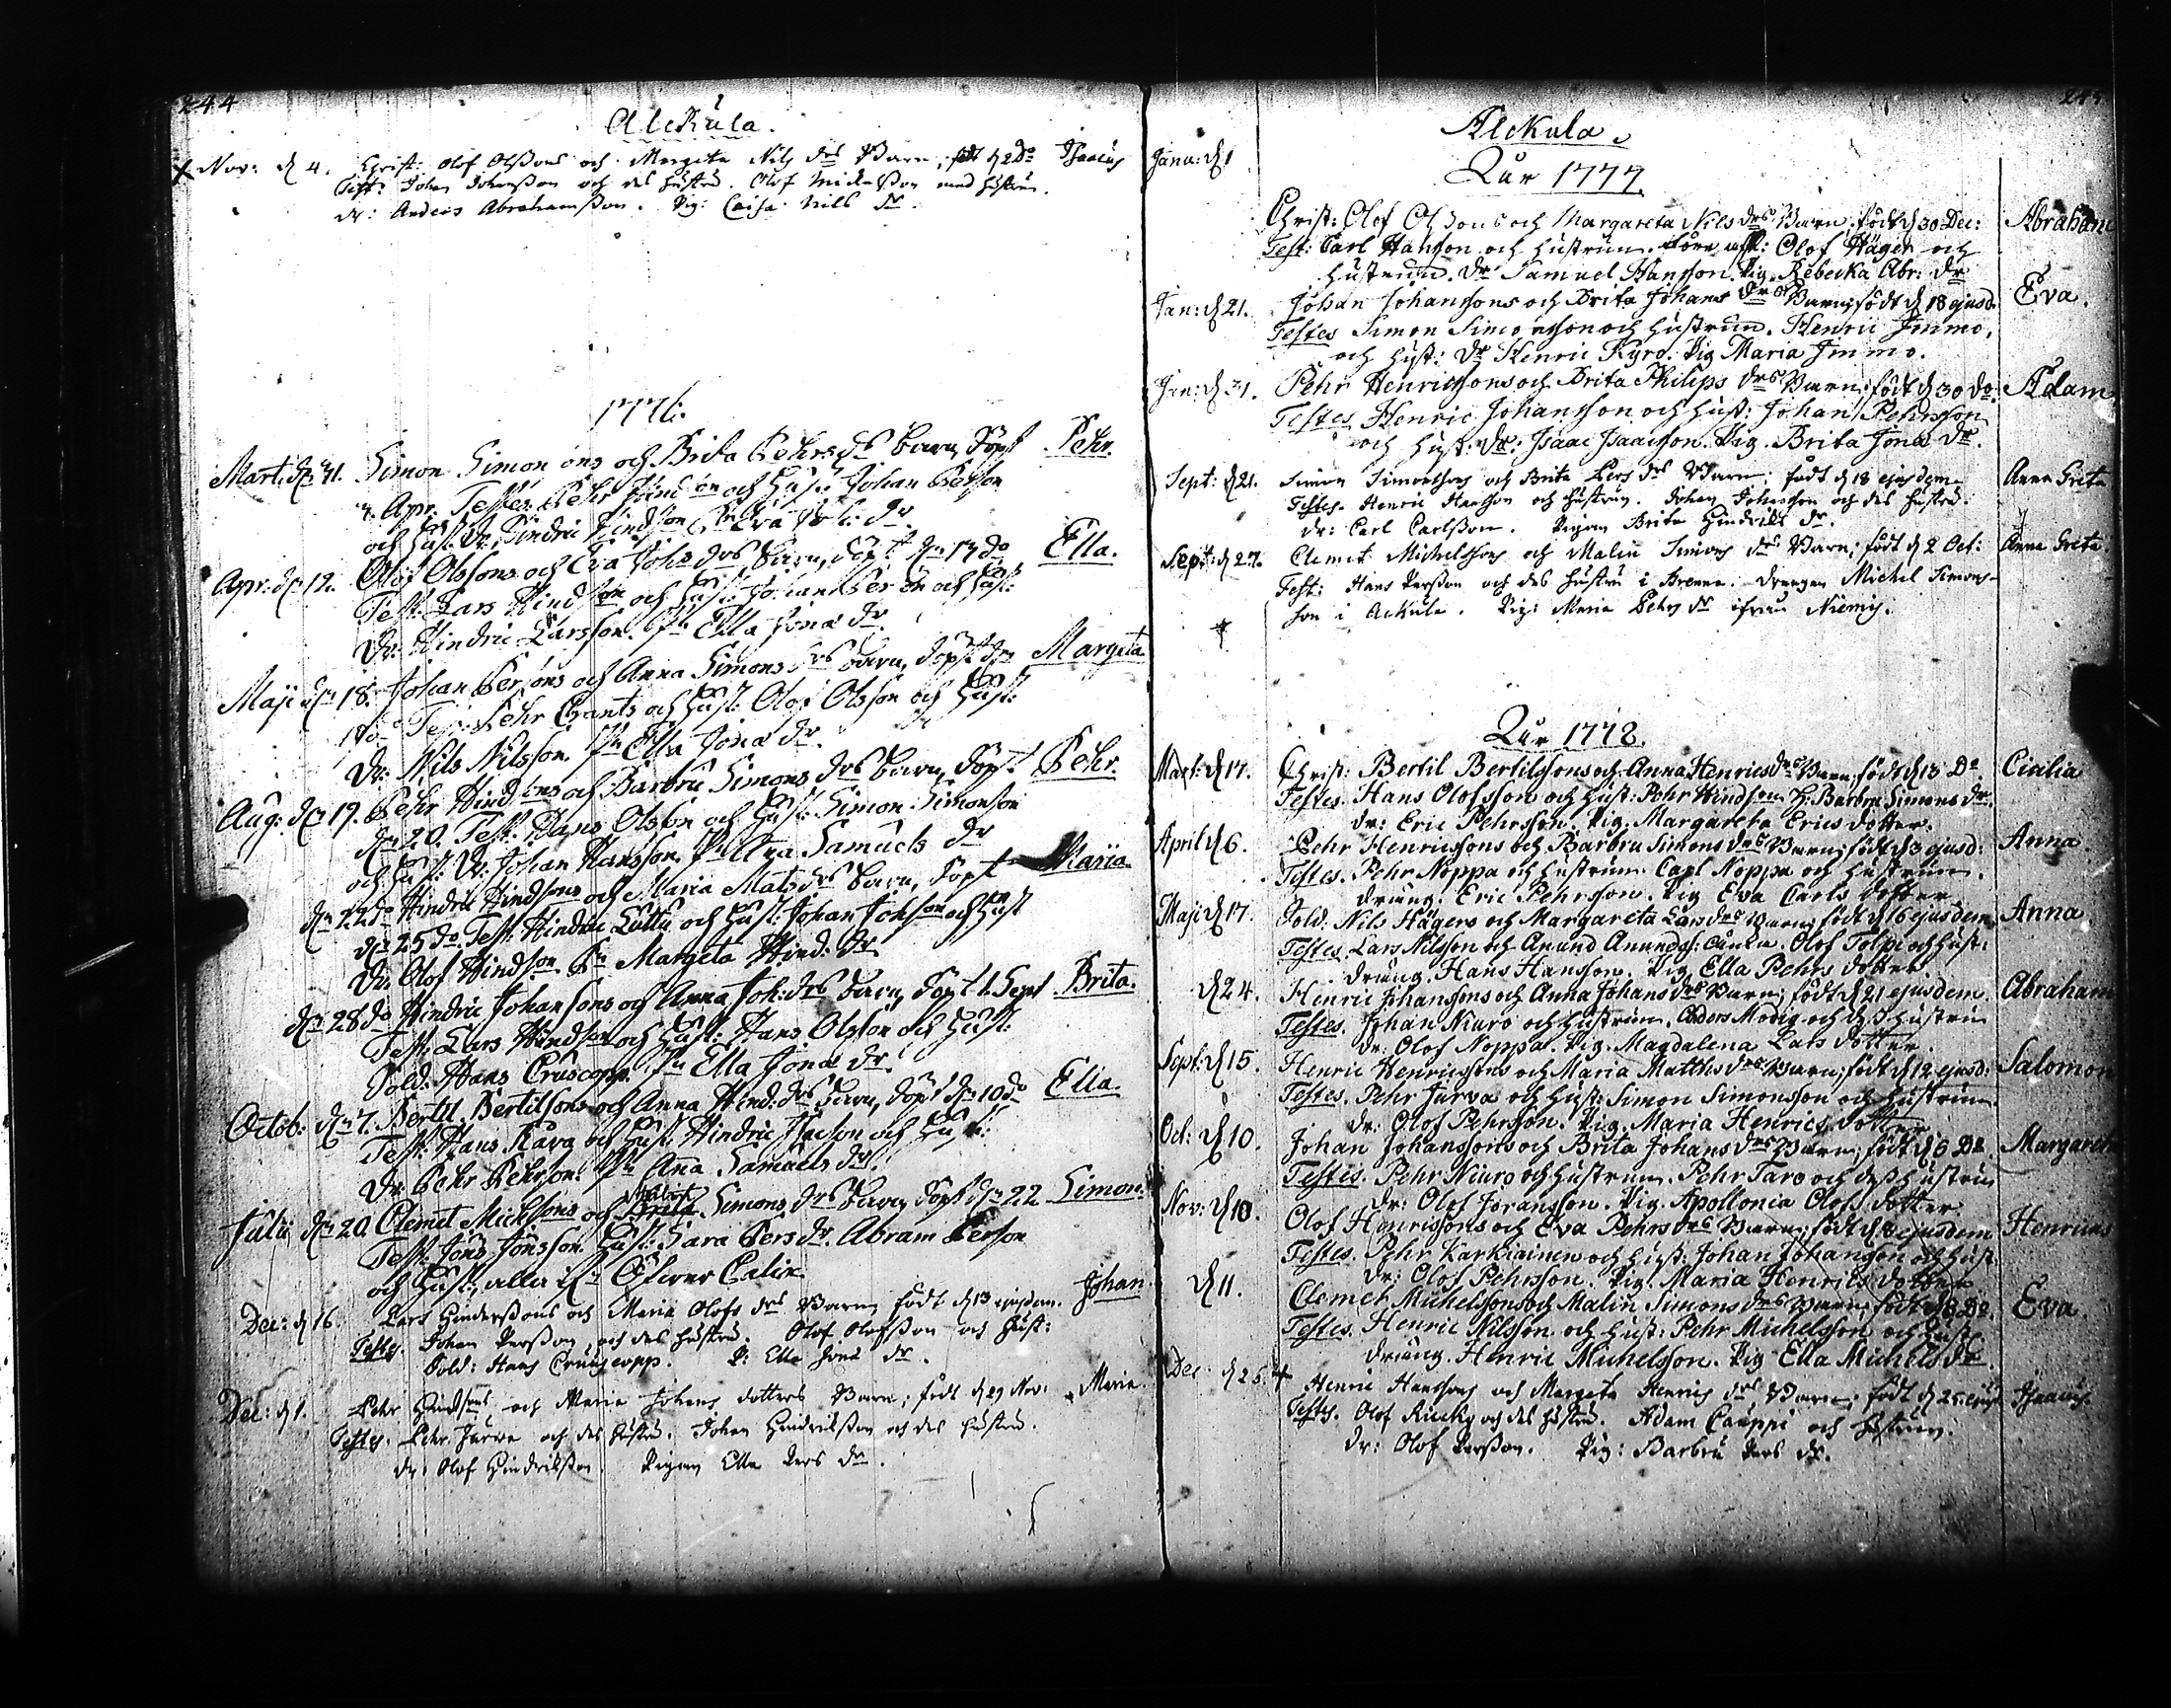 244
Alckula.
Nov: d 4. Christ: Olof Olssons och Margeta Nils drs Barn, födt d 2 do Isaacus
Test: Johan Johansson och des hustru. Olof Mickelsson med hustru.
dr: Anders Abrahamsson. Pig: Caisa Nils dr.
1776.
Mart. dn 31. Simon Simonsons och Brita Pehrs ds barn, döpt Pehr.
Apr. Testes: Pehr och Hust: Johan Person
och Hust: Dr: Hindric Hindson Pn Eva Joh: dr.
Apr: dn 12. Olof Olssons och Eva Johs drs barn, döpt dn 13 do Ella.
Test: Lars Hindson och Hust: Johan Person och Hust:
Dr: Hindric Larsson. Pn Ella Jona dr.
Maji dn 18. Johan Persons och Anna Simons drs barn, döpt dn Margeta
Test: Pehr och Hust: Olof Olsson och Hust:
Dr: Nils Nilsson. Pn Ella Jona dr.
Aug: dn 19. Pehr Hindsons och Barbru Simons drs barn, döpt Pehr.
dn 20. Test: Hans Olsson och Hust: Simon Simonson
och Hust: Dr: Johan Hansson. Pn Ana Samuels dr
dn 22 do Hindric Hindsons och Maria Mats drs barn, döpt Maria
dn 25 do. Test: Hindric Luttu och Hust: Johan Johsson och Hust
Dr: Olof Hindson Pn Margeta Hind: dr
dn 28 do Hindric Johansons och Anna Joh: drs barn, döpt 1. Sept Brita.
Test: Lars Hindson och Hust: Hans Olsson och Hust:
Sold: Hans Cruscopp. Pn Ella Jona dr.
Octob: dn 7. Bertil Bertilsons och Anna Hind: drs barn, döpt dn 10 do Ella.
Test: Hans Kära och Hust: Hindric Isacson och Hust:
Dr: Pehr Pehrson. Pn Ana Samuels dr.
Julii dn 20. Clemet Michelsons och Simons drs barn, döpt dn 22 Simon.
Test: Jöns Jönsson Hust: Sara Pers dr. Abram Person
och Hust:, alla if: Öfwer Calix.
Dec: d 16. Lars Hinderssons och Maria Olofs drs Barn födt d 13 ejusdem. Johan.
Testes Johan Persson och des hustru. Olof Olofsson och hust:
Sold: Hans Cruuscopp. P: Ella Jona dr.
Dec: d 1. Pehr Hindsons och Maria Johans dotters Barn; födt d 29 Nov: Maria.
Testes. Pehr Jurwa och des hustru. Johan Hindriksson och des hustru.
dr: Olof Hindriksson. Pigan Ella Pers dr.
Alckula.
Åhr 1777.
Janu: d 1 Christ: Olof Olssons och Margareta Nils drs Barn, födt d 30 Dec: Abraham
Test: Carl Hansson och hustrun. Olof Häger och
hustrun. Dr Samuel Hansson. Pig. Rebecka Abr: dr
Jan: d 21. Johan Johanssons och Brita Johans drs Barn; födt d 18 ejusd. Eva.
Testes Simon Simonsson och hustrun. Henric Immo,
och hust: Dr Henric Kyrö. Pig Maria Immo.
Jan: d 31. Pehr Henricssons och Brita Philips drs Barn; födt d 30 do. Adam
Testes Henric Johansson och hust: Johan Pehrsson
och hust: Dr: Isaac Isaacson. Pig. Brita Jona dr.
Sept: d 21. Simon Simonssons och Brita Pers drs Barn; födt d 18 ejusdem Anna Greta
Testes. Henric Hansson och hustrun. Johan Johansson och des hustru.
dr: Carl Carlsson. Pigan Brita Hindriks dr.
Sept: d 27. Clemet Michelssons och Malin Simons drs Barn; födt d 2 Oct: Anna Greta
Test: Hans Persson och des hustru i Brenna. Drengen Michel Simons-
son i Alckula. Pig: Maria Pehrs dr ifrån Niemis.
Åhr 1778.
Mart: d 17. Christ: Bertil Bertilssons och Anna Henrics drs Barn; födt d 13 Do. Cicilia
Testes. Hans Olofsson och hust: Pehr Hindson h. Barbru Simons dr.
dr: Eric Pehrsson. Pig. Margareta Erics dotter.
April d 6. Pehr Henricssons och Barbru Simons drs Barn; födt d 3 ejusd: Anna.
Testes. Pehr Noppa och hustrun. Carl Noppa och hustrun.
dräng. Eric Pehrsson. Pig Eva Carls dotter
Maji d 17. Sold: Nils Hägers och Margareta Lars drs Barn; födt d 16 ejusdem Anna
Testes Lars Nilsson och Anund Anunds: enka. Olof Tolpi och hust:
dräng. Hans Hansson. Pig Ella Pehrs dotter.
d 24. Henric Johanssons och Anna Johans drs Barn; födt d 21 ejusdem Abraham
Testes. Johan Niuro och hustrun. Anders Modig och dess hustrun
dr: Olof Noppa. Pig. Magdalena Lars dotter.
Sept: d 15. Henric Henricssons och Maria Matths drs Barn; födt d 12 ejusd: Salomon
Testes. Pehr Jurva och hust: Simon Simonsson och hustrun.
dr: Olof Pehrsson. Pig. Maria Henrics dotter
Oct: d 10. Johan Johanssons och Brita Johans drs Barn; födt d 8 Do. Margareta
Testes. Pehr Niuro och hustrun. Pehr Taro och dess hustrun
dr: Olof Joransson. Pig. Apollonia Olofs dotter
Nov: d 10. Olof Henrissons och Eva Pehrs drs Barn; födt d 8 ejusdem Henricus
Testes. Pehr Karkiainen och hust: Johan Johanson och hust
dr: Olof Pehrsson. Pig. Maria Henrics dotter
d 11. Clemet Michelssons och Malin Simons drs Barn; födt d 8 Do. Eva
Testes. Henric Nilsson och hust: Pehr Michelsson och hust:
dräng. Henric Michelsson. Pig Ella Michels dr.
Dec d 25. Henric Hanssons och Margeta Henrics drs Barn; födt d 25 ejusd Isaacus.
Testes. Olof Rucky och des hustru. Adam Cauppi och hustrun.
dr: Olof Persson. Pig: Barbru Pers dr.